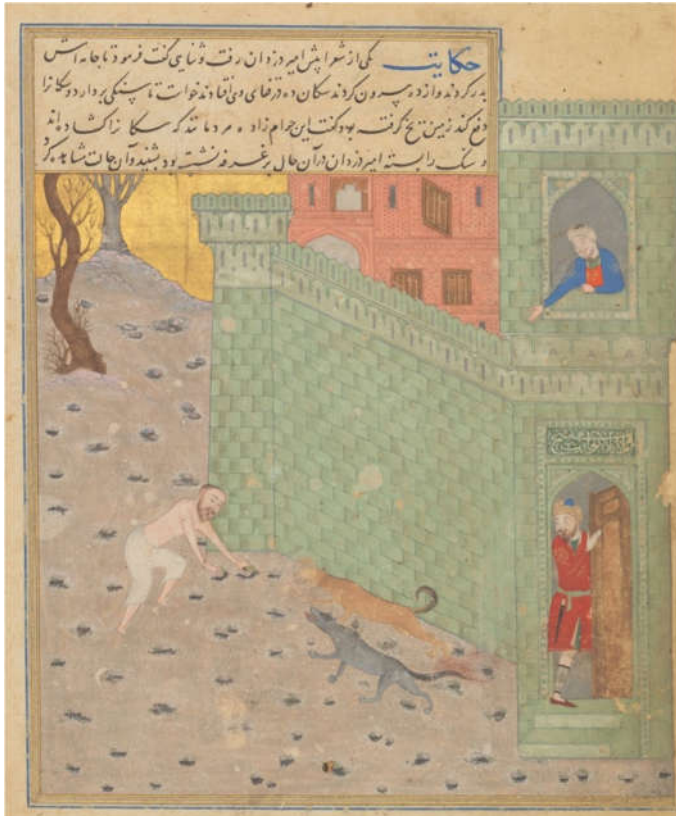 حکایت یکی از شعرا پیش امیر دزدان رفت و ثنایی گفت فرمود تا جامه اش
بدر کردند و از ده بیرون کردند سکان ده در قفای وی افتادند خواست تا سنکی بردارد و سکانرا
دفع کند زمین یخ گرفته بود گفت این حرام زاده مردمانند که سکانرا کشاده اند
و سنک را بسته امیر دزدان در آن حال بر غرفه نشسته بود بشنید و آن حالت مشاهده کر